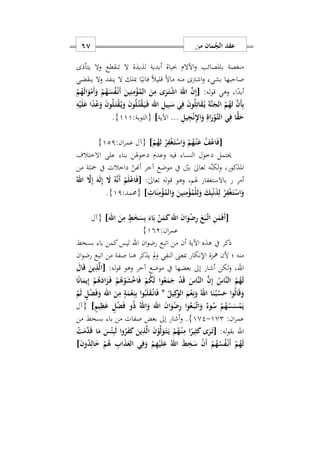 عقد الجُمان من
٦٧
منغصة بالمصائب والآلام بحياة أبدية لذيذة لا تنقطع ولا يتأذى
صاحبها بشيء واشترى منه مالاً قليلاً فانيًا بملك لا ينفد ولا ينقضي
أبدًا، وهي قوله: [إِنَّ اللهَ اشْتَرَى مِنَ الْمُؤْمِنِينَ أَنْفُسَهُمْ وَأَمْوَالَهُمْ
بِأَنَّ لَهُمُ الْجَنَّةَ يُقَاتِلُونَ فِي سَبِيلِ اللهِ فَيَقْتُلُونَ وَيُقْتَلُونَ وَعْدًا عَلَيْهِ
حَقًّا فِي التَّوْرَاةِ وَالإِنْجِيلِ ... الآية] {التوبة:١١١}.
[فَاعْفُ عَنْهُمْ وَاسْتَغْفِرْ لَهُمْ] {آل عمران:١٥٩}
يحتمل دخول النساء فيه وعدم دخولهن بناء على الاختلاف
المذكور، ولكنَّه تعالىٰ بيّن في موضع آخر أنهنَّ داخلات في جملة من
أمر ر بالاستغفار لهم، وهو قوله تعالىٰ: [فَاعْلَمْ أَنَّهُ لَا إِلَهَ إِلَّا اللهُ
وَاسْتَغْفِرْ لِذَنْبِكَ وَلِلْمُؤْمِنِينَ وَالْمُؤْمِنَاتِ] {محمد:١٩}.
[أَفَمَنِ اتَّبَعَ رِضْوَانَ اللهِ كَمَنْ بَاءَ بِسَخَطٍ مِنَ اللهِ] {آل
عمران:١٦٢}
ذكر في هذه الآية أن من اتبع رضوان الله ليس كمن باء بسخط
منه ؛ لأن همزة الإنكار بمعنى النفي ولم يذكر هنا صفة من اتبع رضوان
الله، ولكن أشار إلى بعضها في موضع آخر وهو قوله: [الَّذِينَ قَالَ
لَهُمُ النَّاسُ إِنَّ النَّاسَ قَدْ جَمَعُوا لَكُمْ فَاخْشَوْهُمْ فَزَادَهُمْ إِيمَانًا
وَقَالُوا حَسْبُنَا اللهُ وَنِعْمَ الْوَكِيلُ * فَانْقَلَبُوا بِنِعْمَةٍ مِنَ اللهِ وَفَضْلٍ لَمْ
يَمْسَسْهُمْ سُوءٌ وَاتَّبَعُوا رِضْوَانَ اللهِ وَاللهُ ذُو فَضْلٍ عَظِيمٍ] {آل
عمران: ١٧٣-١٧٤}. وأشار إلى بعض صفات من باء بسخط من
الله بقوله: [تَرَى كَثِيرًا مِنْهُمْ يَتَوَلَّوْنَ الَّذِينَ كَفَرُوا لَبِئْسَ مَا قَدَّمَتْ
لَهُمْ أَنْفُسُهُمْ أَنْ سَخِطَ اللهُ عَلَيْهِمْ وَفِي الْعَذَابِ هُمْ خَالِدُونَ]